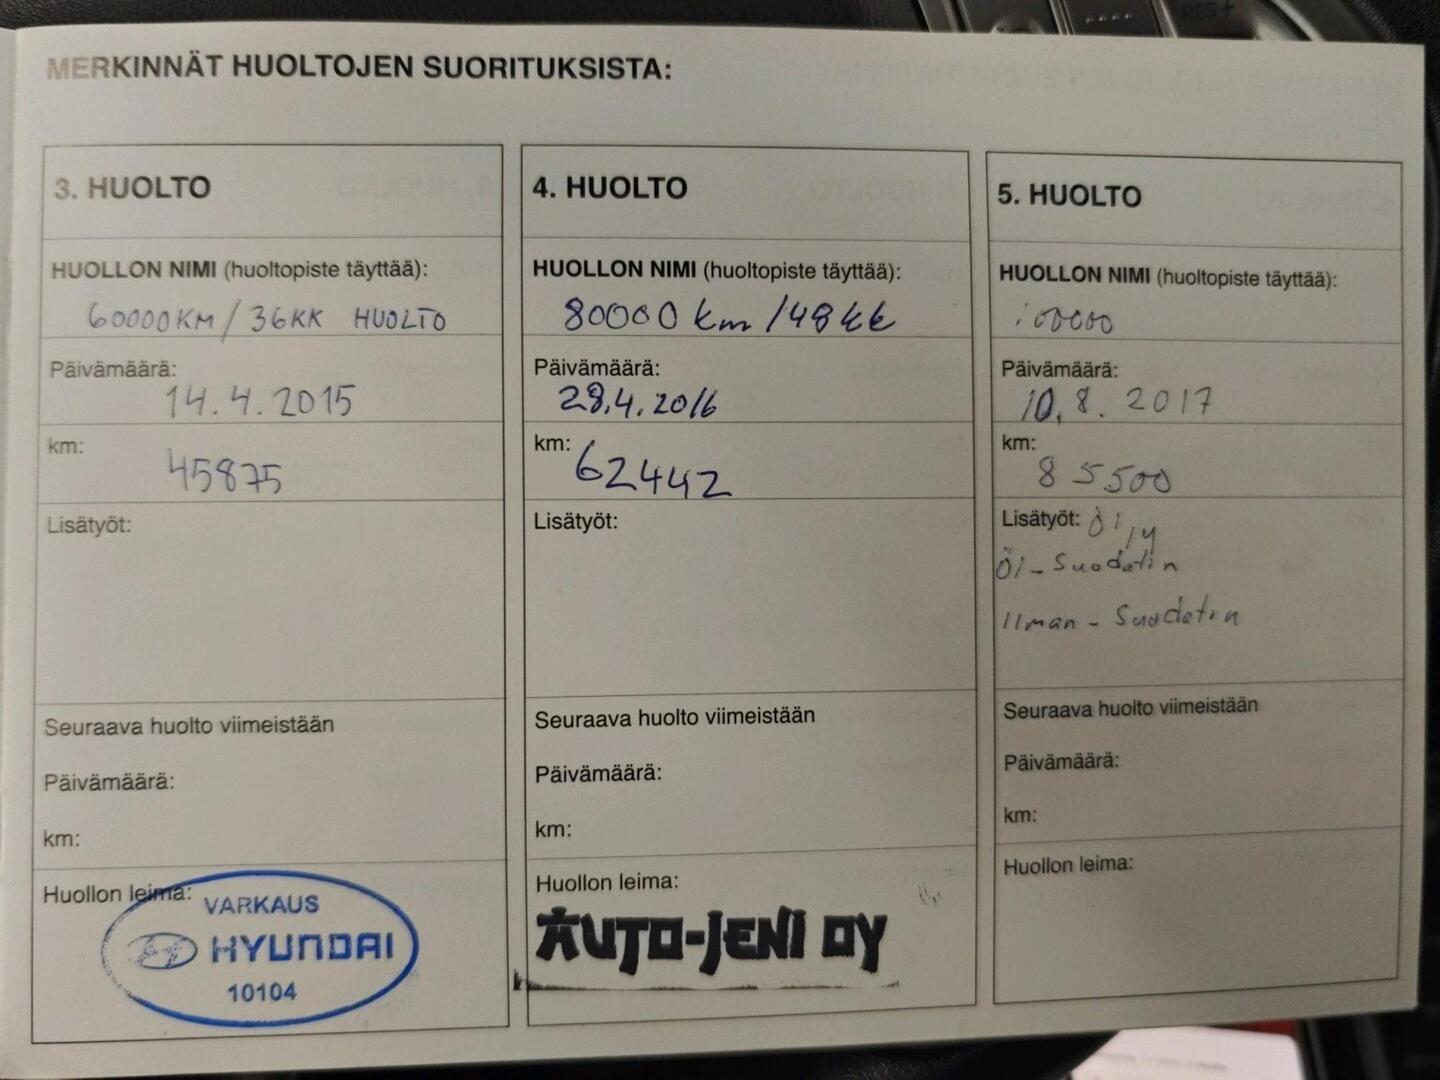 RES+
MERKINNÄT HUOLTOJEN SUORITUKSISTA:
3. HUOLTO
HUOLLON NIMI (huoltopiste täyttää):
60000KM / 36KK HUOLTO
Päivämäärä:
14.4.2015
km:
45875
Lisätyöt:
Seuraava huolto viimeistään
Päivämäärä:
km:
Huollon leima:
VARKAUS
HYUNDAI
10104
4. HUOLTO
HUOLLON NIMI (huoltopiste täyttää):
80000 km /48kk
Päivämäärä:
28.4.2016
km:
62442
Lisätyöt:
Seuraava huolto viimeistään
Päivämäärä:
km:
Huollon leima:
AUTO-JENI OY
5. HUOLTO
HUOLLON NIMI (huoltopiste täyttää):
100000
Päivämäärä:
10.8.2017
km:
85500
Lisätyöt: Öljy
Öl-Suodatin
Ilman-Suodatin
Seuraava huolto viimeistään
Päivämäärä:
km:
Huollon leima: